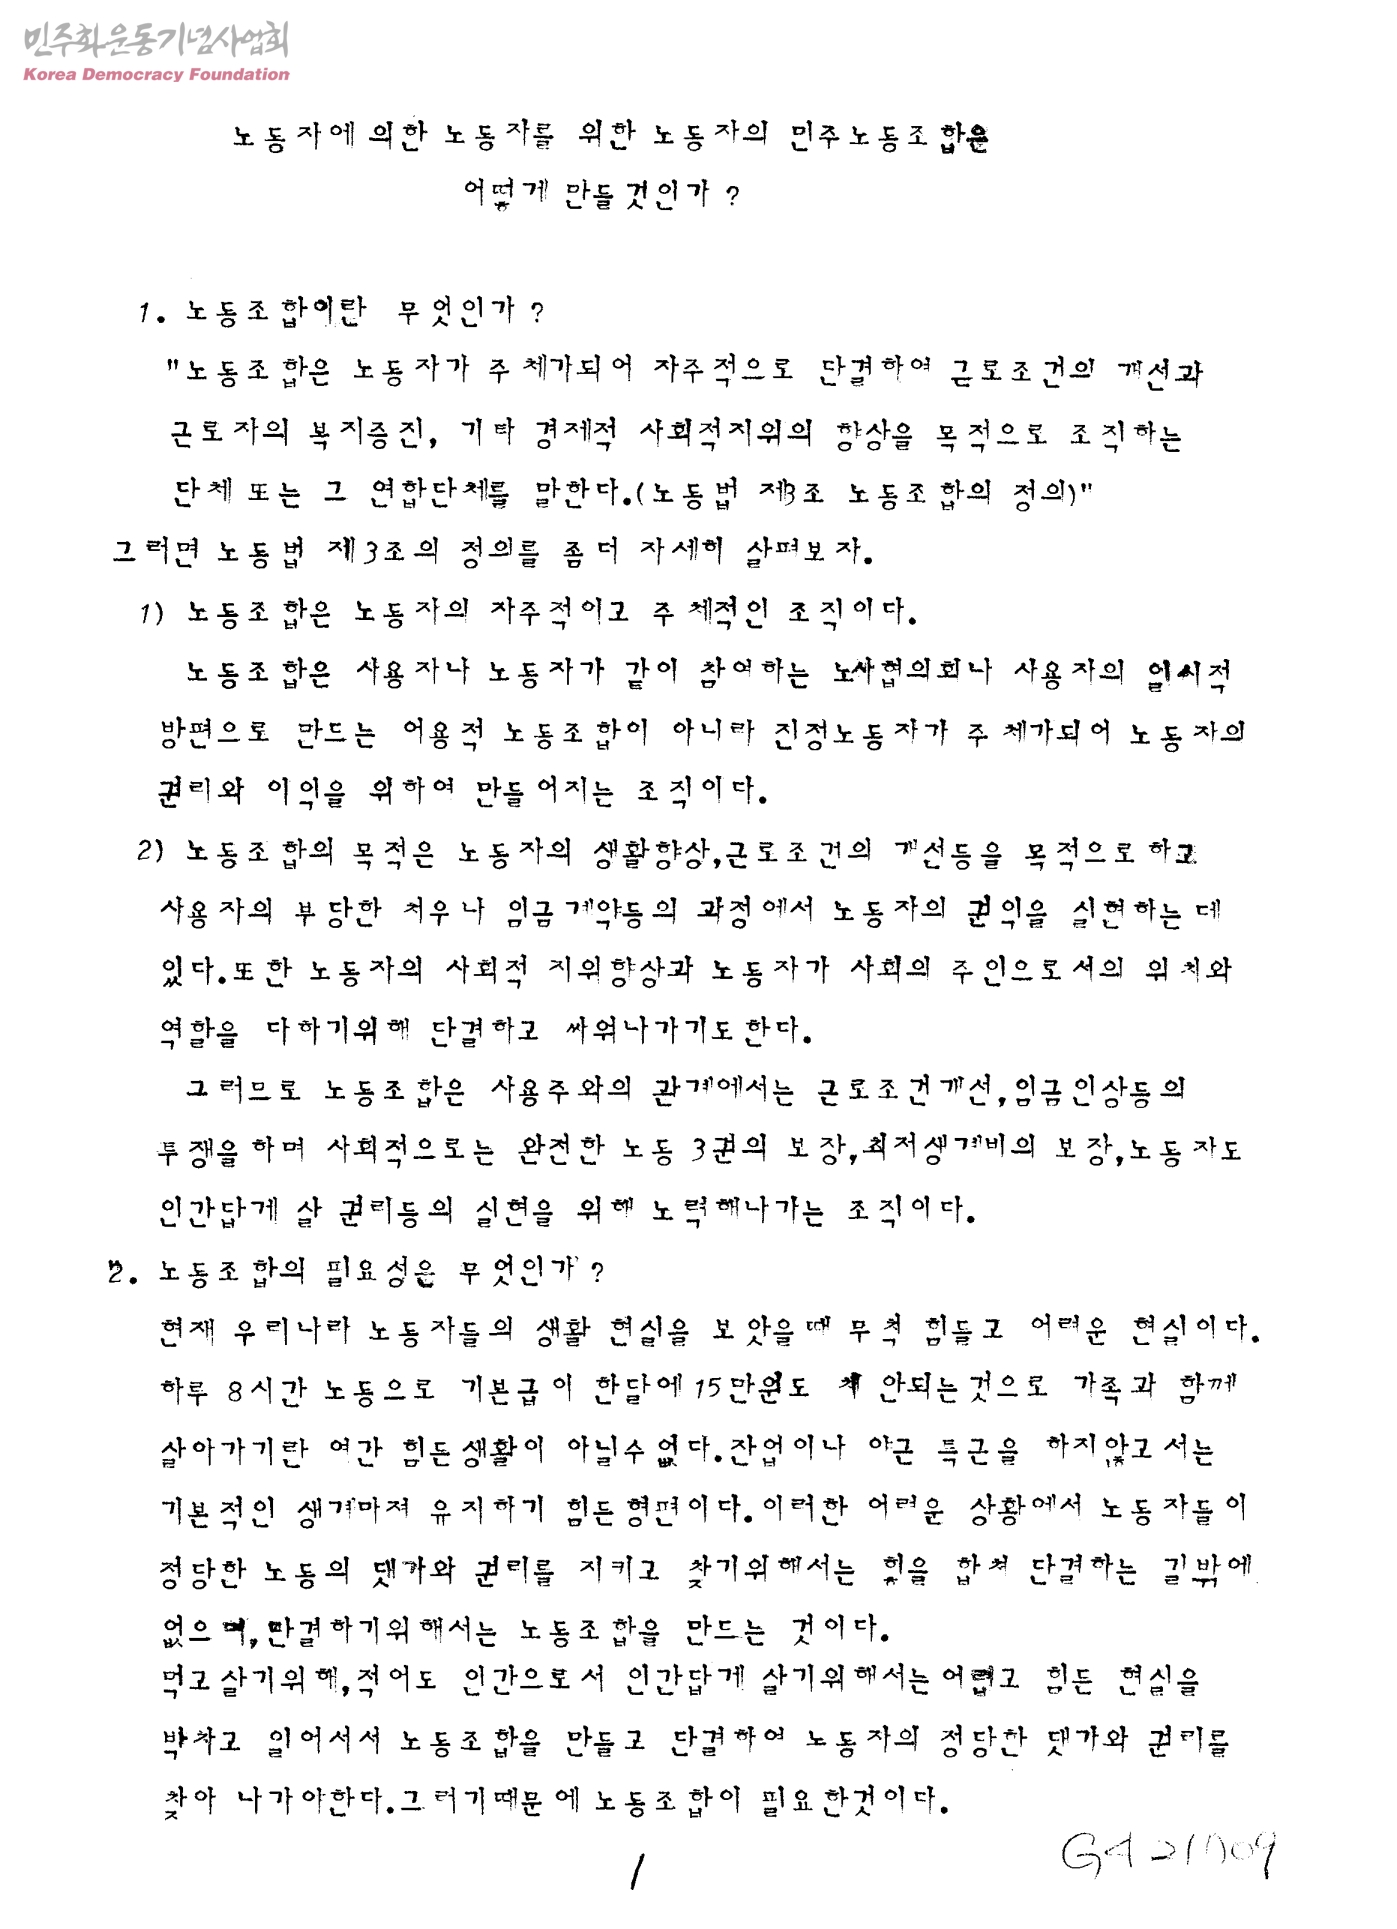 민주화운동기념사업회
Korea Democracy Foundation
노동자에 의한 노동자를 위한 노동자의 민주노동조합은
어떻게 만들것인가?
1. 노동조합이란 무엇인가?
"노동조합은 노동자가 주체가되어 자주적으로 단결하여 근로조건의 개선과
근로자의 복지증진, 기타 경제적 사회적지위의 향상을 목적으로 조직하는
단체 또는 그 연합단체를 말한다.(노동법 제3조 노동조합의 정의)"
그러면 노동법 제3조의 정의를 좀더 자세히 살펴보자.
1) 노동조합은 노동자의 자주적이고 주체적인 조직이다.
노동조합은 사용자나 노동자가 같이 참여하는 노사협의회나 사용자의 일시적
방편으로 만드는 어용적 노동조합이 아니라 진정노동자가 주체가되어 노동자의
권리와 이익을 위하여 만들어지는 조직이다.
2) 노동조합의 목적은 노동자의 생활향상,근로조건의 개선등을 목적으로하고
사용자의 부당한 처우나 임금계약등의 과정에서 노동자의 권익을 실현하는데
있다.또한 노동자의 사회적 지위향상과 노동자가 사회의 주인으로서의 위치와
역할을 다하기위해 단결하고 싸워나가기도한다.
그러므로 노동조합은 사용주와의 관계에서는 근로조건개선,임금인상등의
투쟁을하며 사회적으로는 완전한 노동 3권의 보장,최저생계비의 보장,노동자도
인간답게 살 권리등의 실현을 위해 노력해나가는 조직이다.
2. 노동조합의 필요성은 무엇인가?
현재 우리나라 노동자들의 생활 현실을 보았을때 무척 힘들고 어려운 현실이다.
하루 8시간노동으로 기본급이 한달에 15만원도 안되는것으로 가족과 함께
살아가기란 여간 힘든생활이 아닐수없다.잔업이나 야근 특근을 하지않고서는
기본적인 생계마져 유지하기 힘든형편이다.이러한 어려운 상황에서 노동자들이
정당한 노동의 댓가와 권리를 지키고 찾기위해서는 힘을 합쳐 단결하는 길밖에
없으며,단결하기위해서는 노동조합을 만드는 것이다.
먹고살기위해,적어도 인간으로서 인간답게 살기위해서는어렵고 힘든 현실을
박차고 일어서서 노동조합을 만들고 단결하여 노동자의 정당한 댓가와 권리를
찾아 나가야한다.그러기때문에 노동조합이 필요한것이다.
1